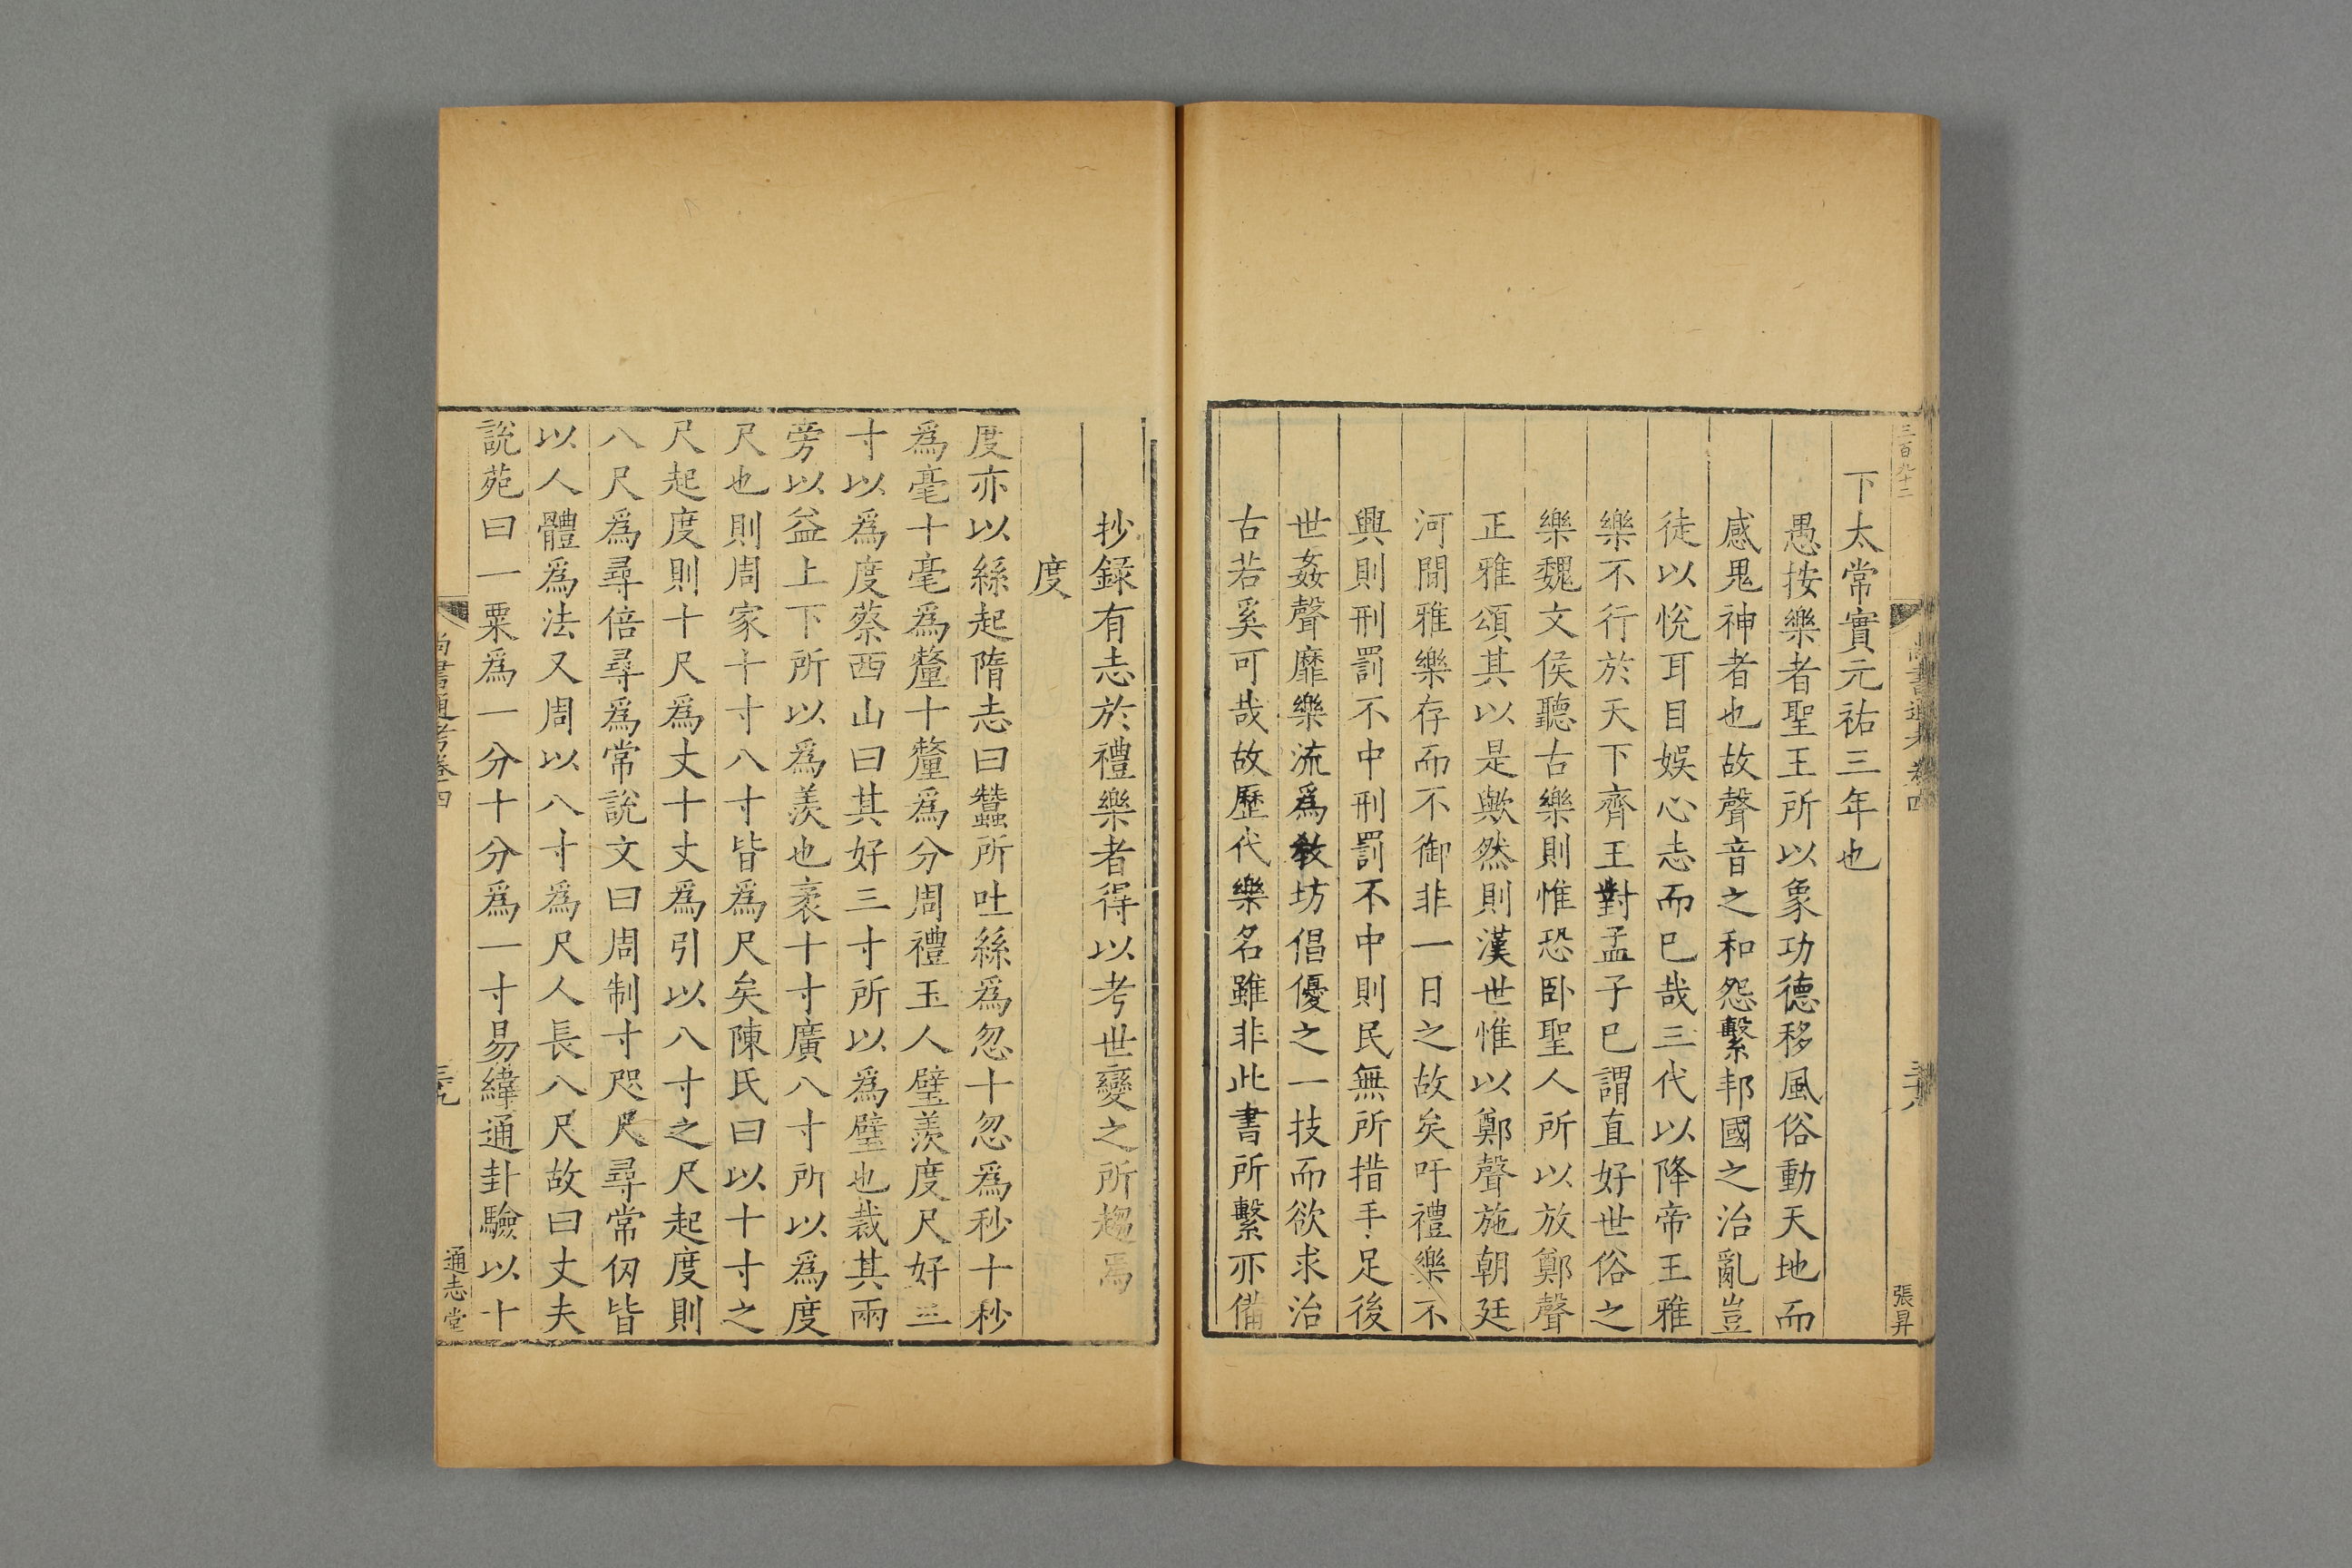 三百九十二
尚書通考卷四
三十八
張昇
下太常實元祐三年也
愚按樂者聖王所以象功德移風俗動天地而
感鬼神者也故聲音之和怨繫邦國之治亂豈
徒以悅耳目娛心志而已哉三代以降帝王雅
樂不行於天下齊王對孟子已謂直好世俗之
樂魏文侯聽古樂則惟恐臥聖人所以放鄭聲
正雅頌其以是歟然則漢世惟以鄭聲施朝廷
河間雅樂存而不御非一日之故矣吁禮樂不
興則刑罰不中刑罰不中則民無所措手足後
世姦聲靡樂流爲敎坊倡優之一技而欲求治
古若奚可哉故歷代樂名雖非此書所繫亦備
抄錄有志於禮樂者得以考世變之所趨焉
度
度亦以絲起隋志曰蠶所吐絲爲忽十忽爲秒十秒
爲毫十毫爲釐十釐爲分周禮玉人璧羨度尺好三
寸以爲度蔡西山曰其好三寸所以爲璧也裁其兩
旁以益上下所以爲羨也袤十寸廣八寸所以爲度
尺也則周家十寸八寸皆爲尺矣陳氏曰以十寸之
尺起度則十尺爲丈十丈爲引以八寸之尺起度則
八尺爲尋倍尋爲常說文曰周制寸咫尺尋常仞皆
以人體爲法又周以八寸爲尺人長八尺故曰丈夫
說苑曰一粟爲一分十分爲一寸易緯通卦驗以十
尚書通考卷四
三十九
通志堂